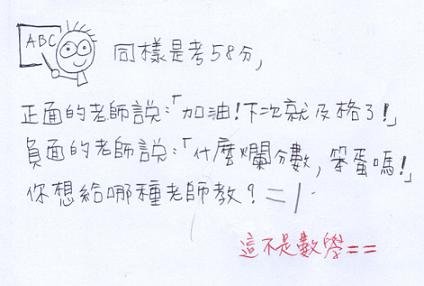 ABC
同樣是考58分,
正面的老師說:「加油!下次就及格了!」
負面的老師說:「什麼爛分數,笨蛋嗎!」
你想給哪種老師教?=1
這不是數學==